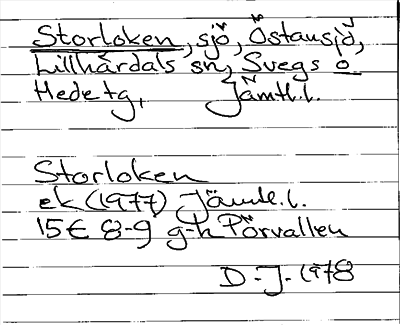 Storloken, sjö, Östansjö,
Lillhärdals sn, Svegs o
Hede tg, Jämtl.l.
Storloken
ek (1977) Jämtl.l.
15E 8-9 g-h Pörvallen
D.J. 1978